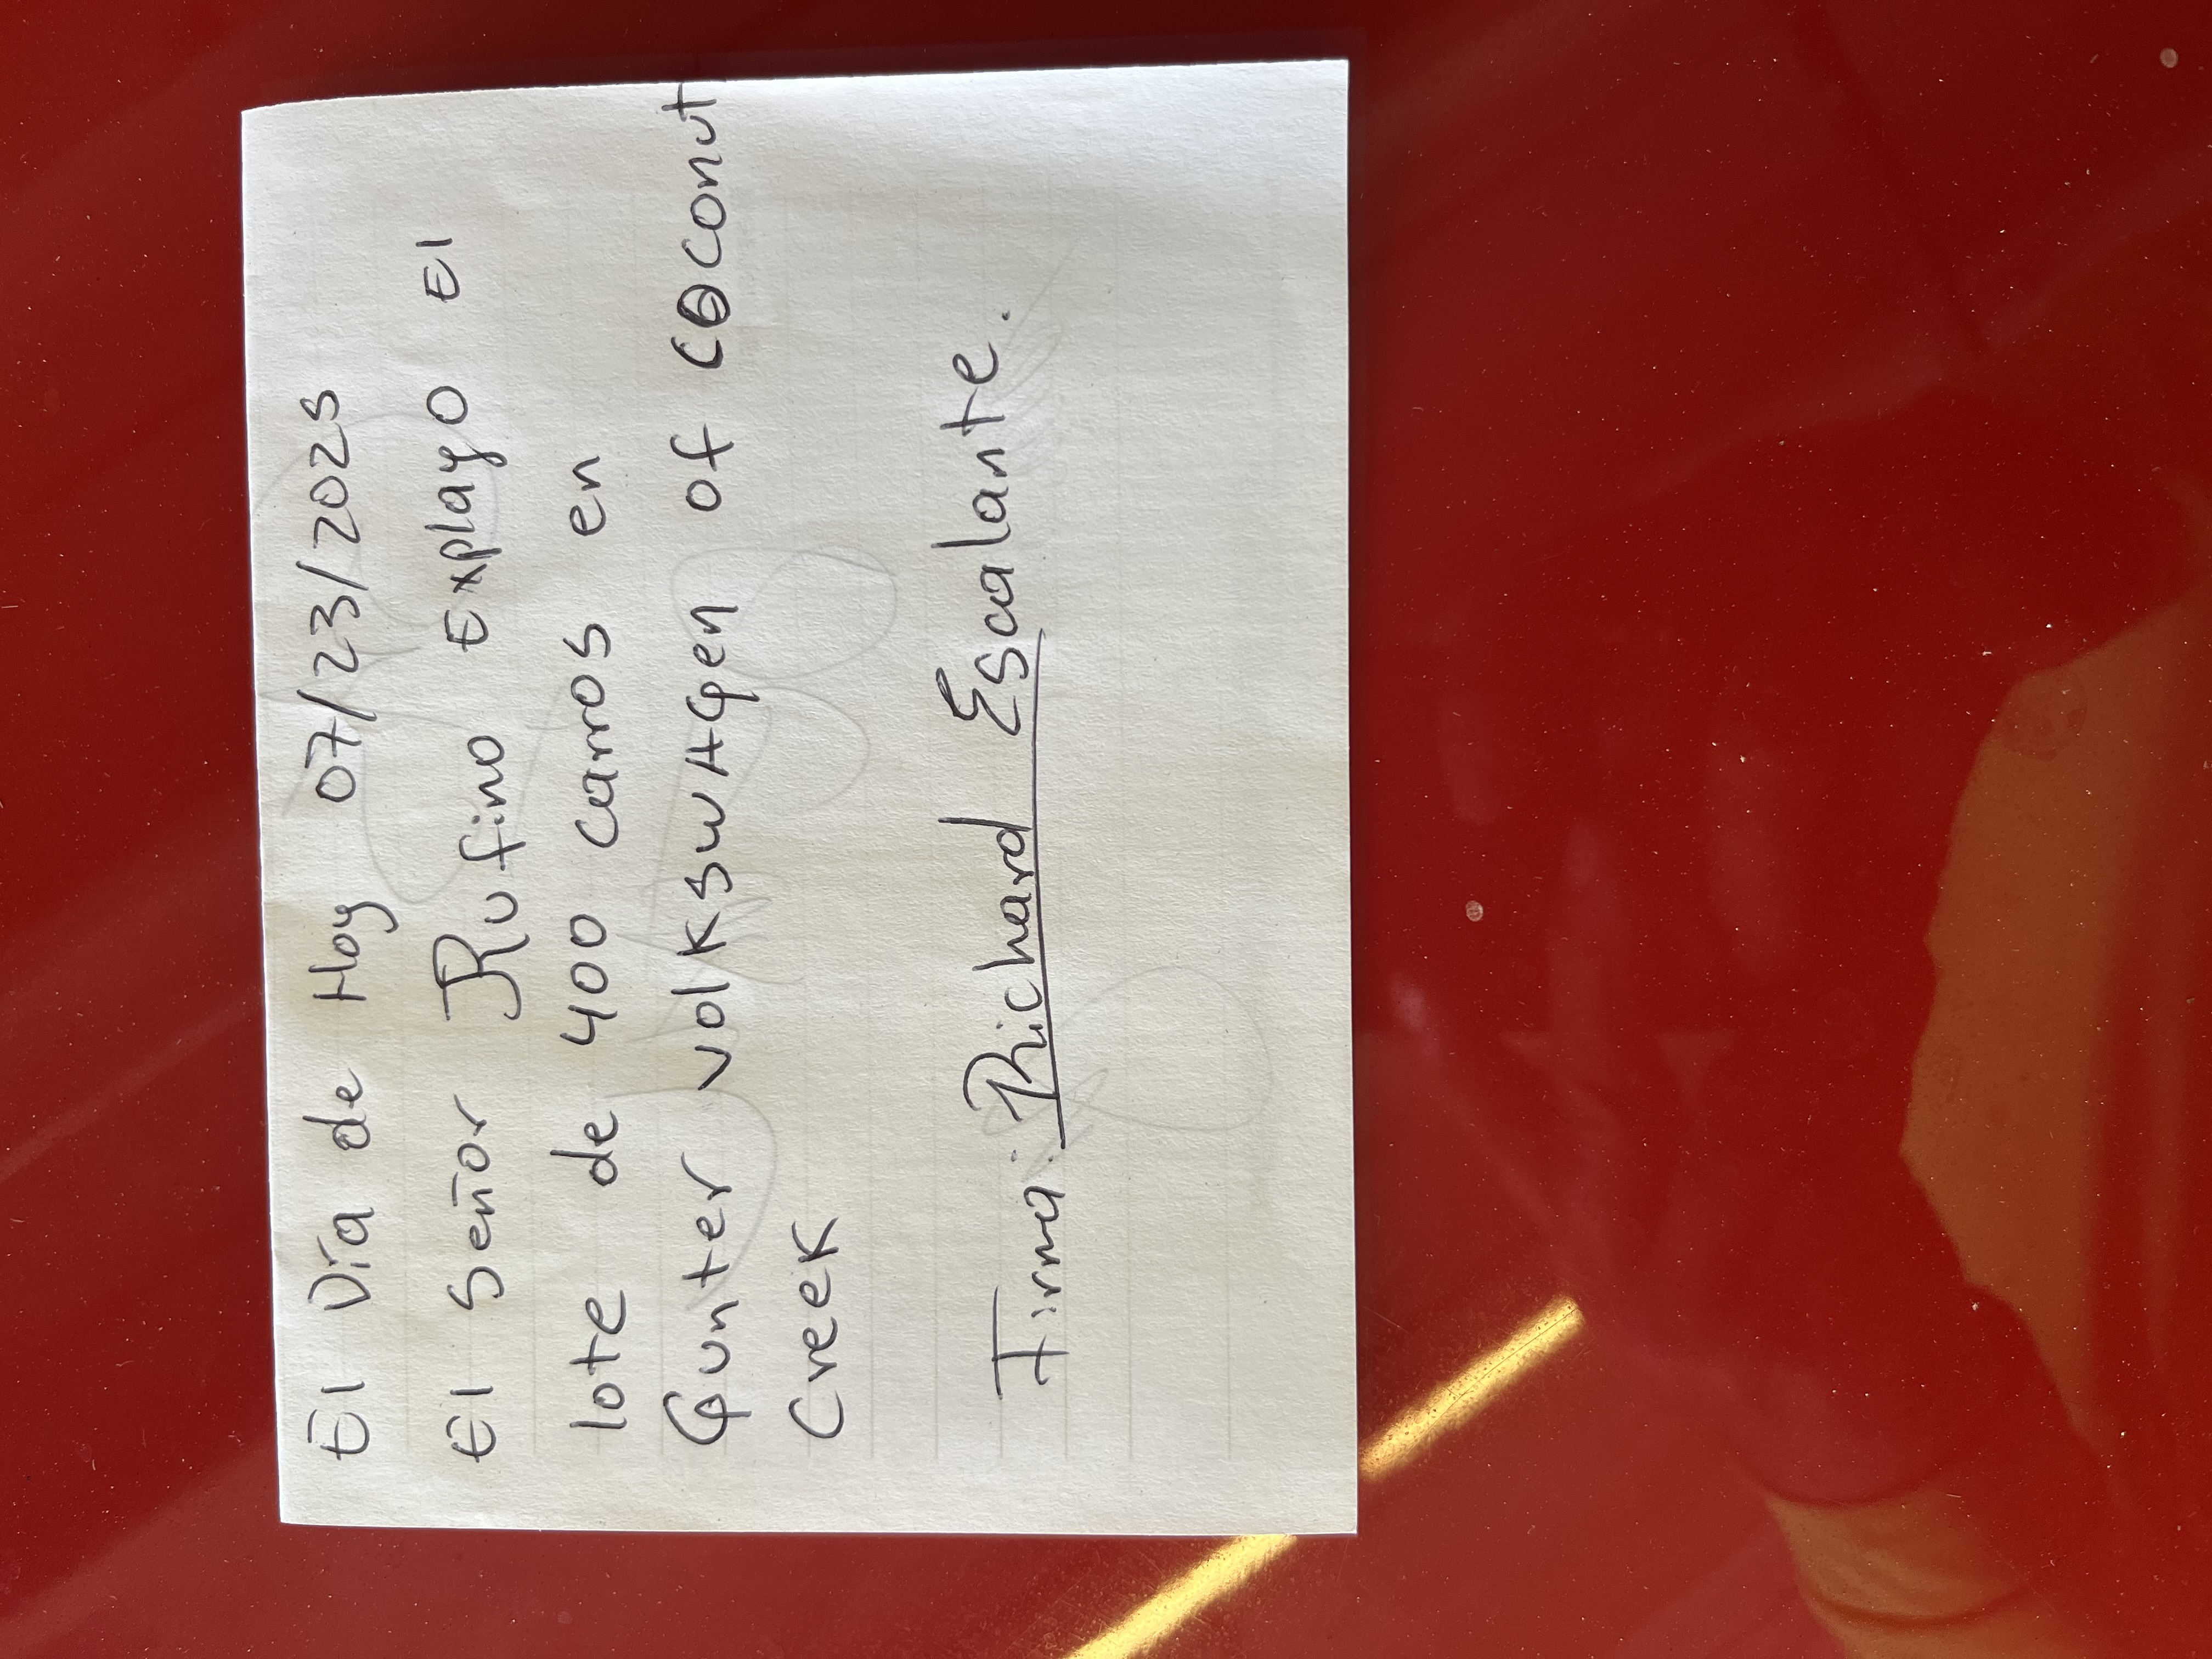 El Día de Hoy 07/23/2025
El Señor Rufino Explayo El
lote de 400 carros en
Gunter volkswAgen of Coconut
Creek
Firma: Richard Escalante.